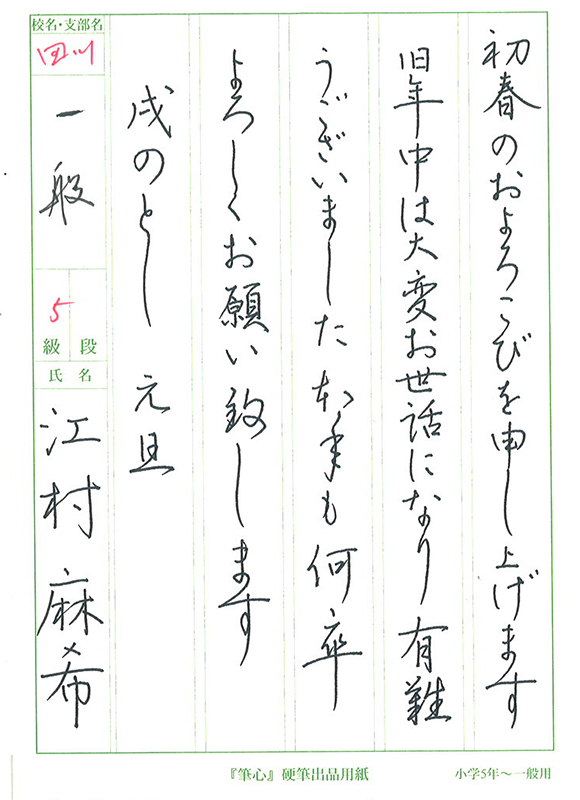 初春のおよろこびを申し上げます
旧年中は大変お世話になり有難
うございました本年も何卒
よろしくお願い致します
戌のとし 元旦
校名・支部名
田川
一般
5
級 段
氏名
江村麻希
『筆心』硬筆出品用紙
小学5年〜一般用